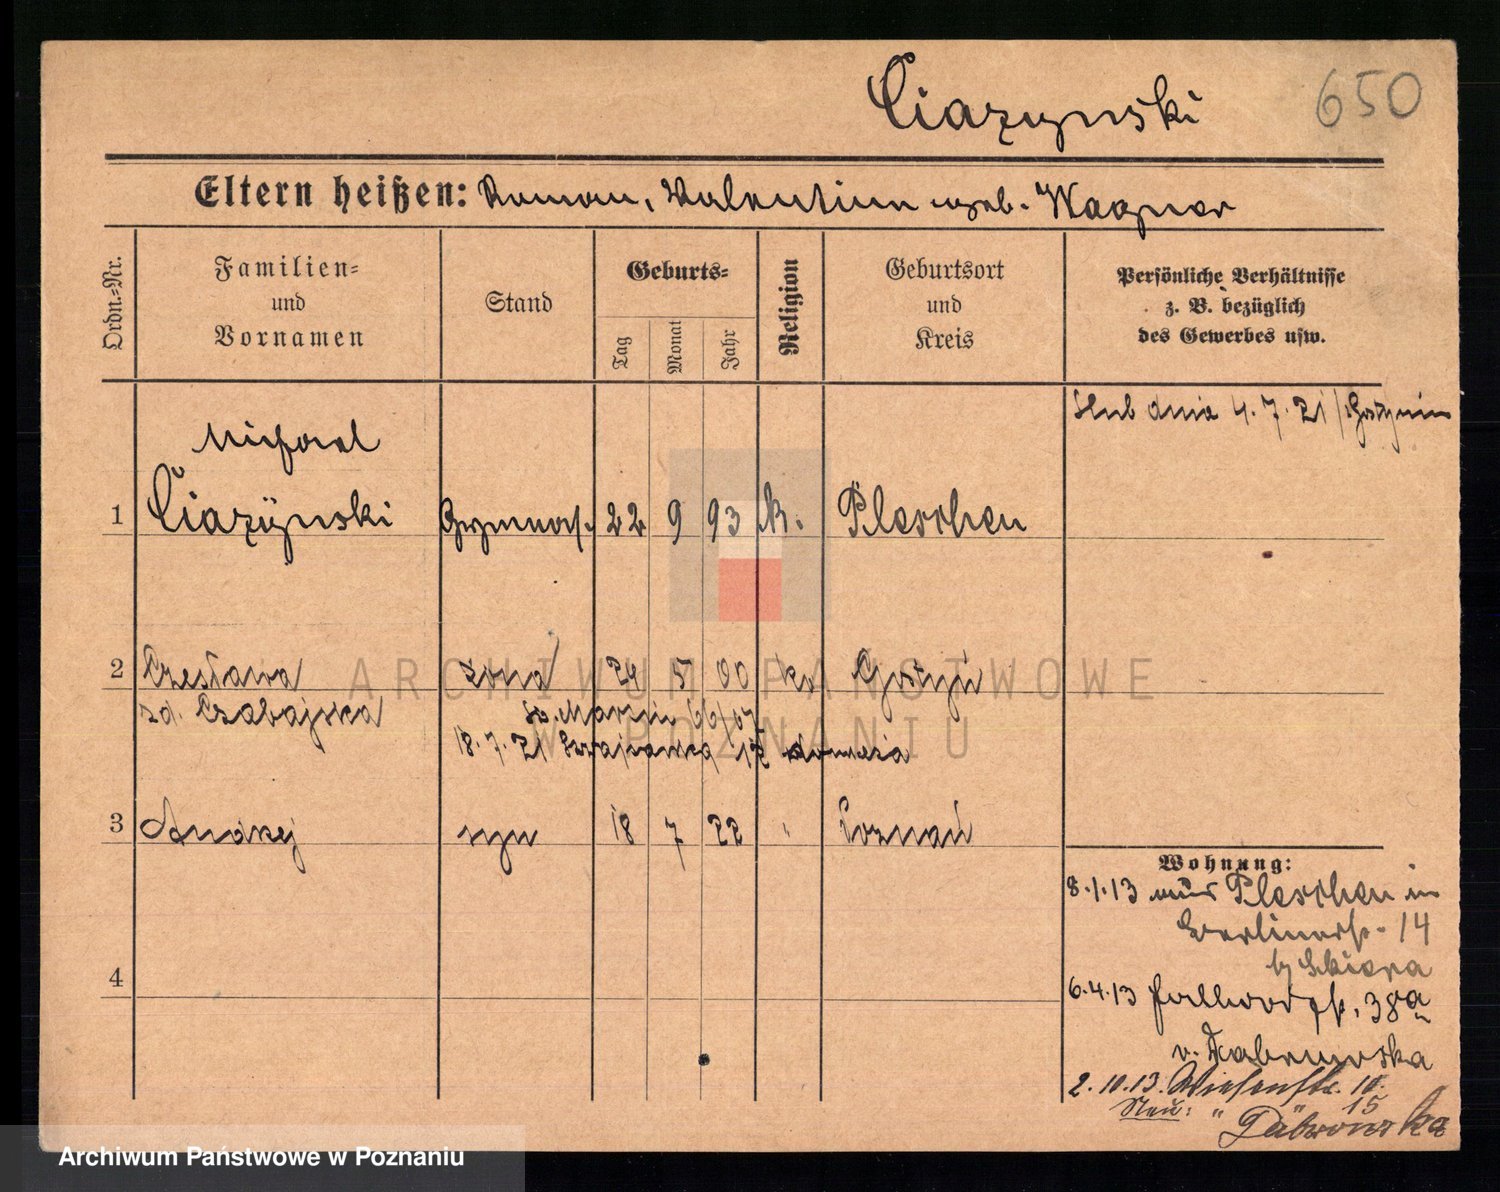 Ciazynski 650
Eltern heißen: Roman, Valentine geb. Wagner
Ordn.-Nr.
Familien-
und
Vornamen
Stand
Geburts-
Tag
Monat
Jahr
Religion
Geburtsort
und
Kreis
Persönliche Verhältnisse
z. B. bezüglich
des Gewerbes usw.
Slub dnia 4.7.21
Michael
1 Ciazÿnski Gymnas. 22 9 93 k. Pleschen
2 Czesława żona 24 5 00 k. Gostyń
zd. Czabajska św. Marcin 66/67
18.7.21
3 Andrzej syn 18 7 22 " Poznań
4
Wohnung:
8.1.13 aus Pleschen in
Berlinerstr. 14
b/ Sikiora
6.4.13 38a
v. Dabrowska
2.10.13. Wiesenstr. 10.
Neu: " " 15
Dabrowska
ARCHIWUM PAŃSTWOWE
W POZNANIU
Archiwum Państwowe w Poznaniu